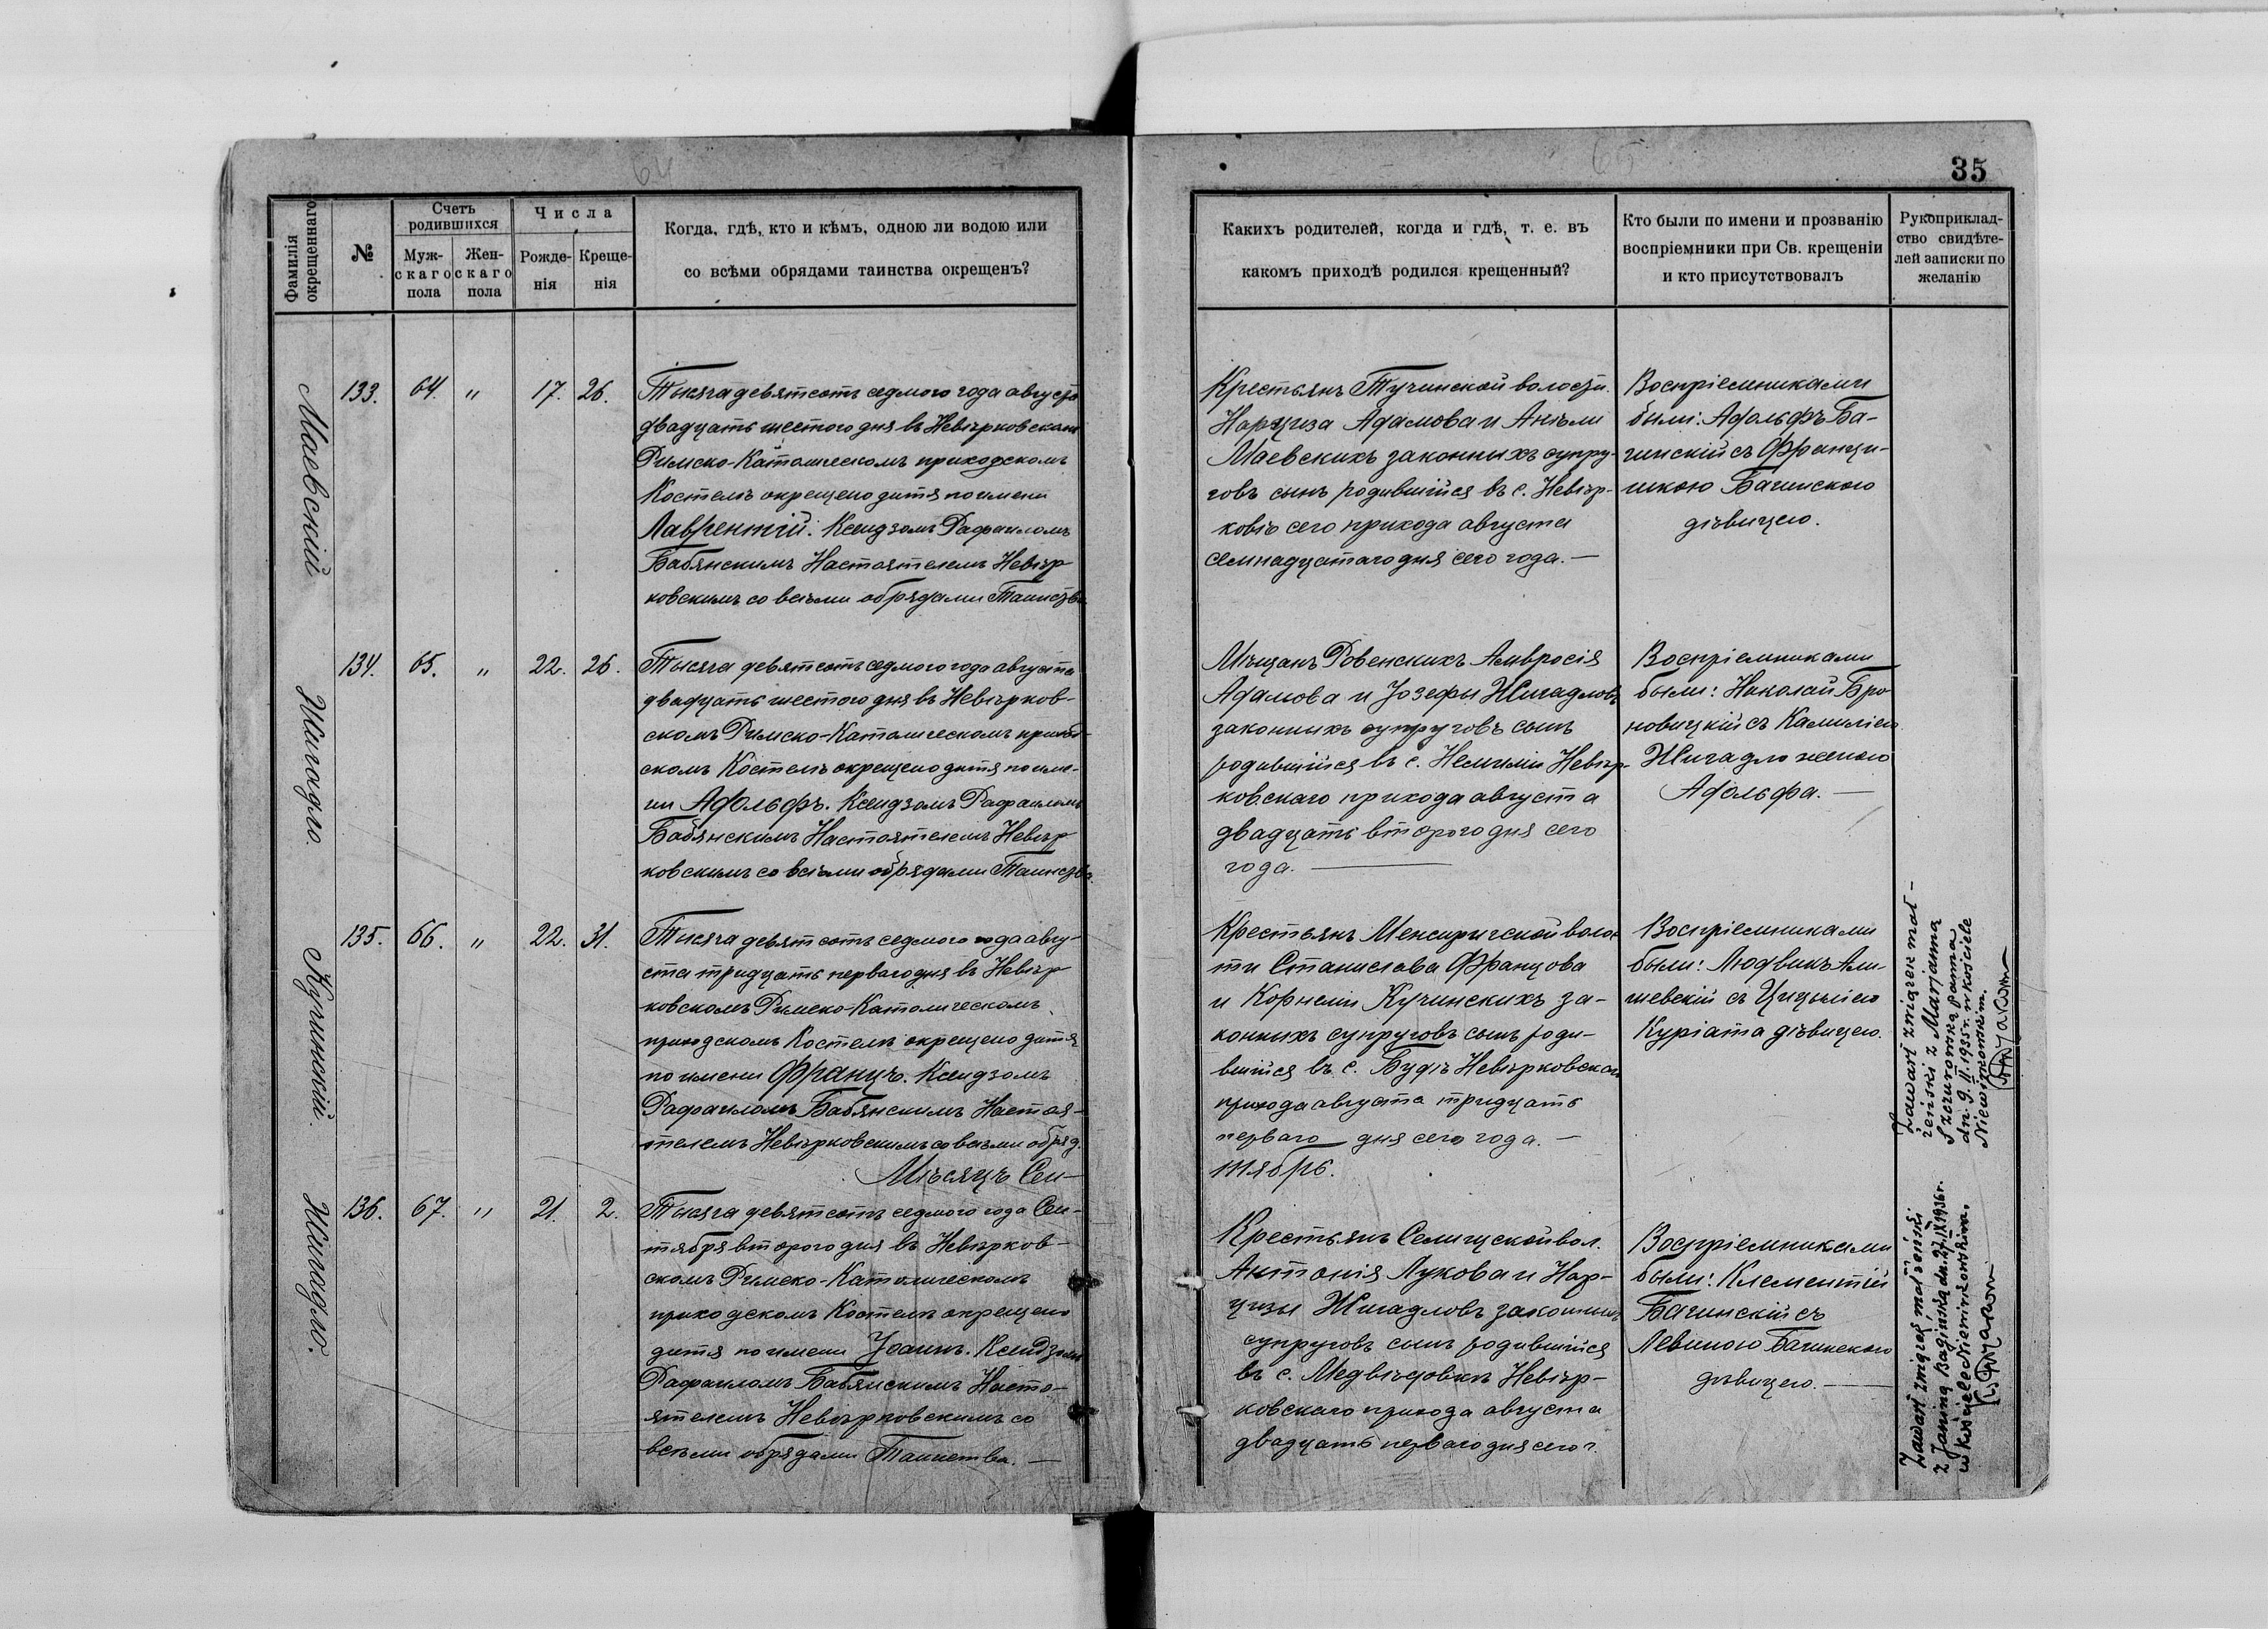 64
65
35
Фамилія окрещеннаго
№
Счетъ родившихся
Муж-
скаго
пола
Жен-
скаго
пола
Числа
Рожде-
нія
Креще-
нія
Когда, гдѣ, кто и кѣмъ, одною ли водою или
со всѣми обрядами таинства окрещенъ?
Какихъ родителей, когда и гдѣ, т. е. въ
какомъ приходѣ родился крещенный?
Кто были по имени и прозванію
воспріемники при Св. крещеніи
и кто присутствовалъ
Рукоприклад-
ство свидѣте-
лей записки по
желанію
Маевскій
133. 64. " 17. 26.
Тысяча девятсотъ седмого года августа
двадцать шестого дня въ Невѣрковскомъ
Римско-Католическомъ приходскомъ
Костелѣ окрещено дитя по имени
Лаврентій. Ксендзомъ Рафаиломъ
Бабянскимъ Настоятелемъ Невѣр
ковскимъ со всѣми обрядами Таинства
Крестьянъ Тучинской волости.
Нарциза Адамова и Анѣли
Маевскихъ законныхъ супру-
говъ сынъ родившійся въ с. Невѣр-
ковѣ сего прихода августа
семнадцатаго дня сего года. —
Воспріемниками
были: Адольфъ Ба-
гинскій съ Францы-
шкою Багинскою
дѣвицею.
Жигадло.
134. 65. " 22. 26.
Тысяча девятсотъ седмого года августа
двадцать шестого дня въ Невѣрков-
скомъ Римско-Католическомъ приход-
скомъ Костелѣ окрещено дитя по име-
ни Адольфъ. Ксендзомъ Рафаиломъ
Бабянскимъ Настоятелемъ Невѣр
ковскимъ со всѣми обрядами Таинства.
Мѣщанъ Ровенскихъ Амвросія
Адамова и Іозефы Жигадловъ
законныхъ супруговъ сынъ
родившійся въ с. Немиліи Невѣр-
ковскаго прихода августа
двадцать второго дня сего
года. —
Воспріемниками
были: Николай Бро
новицкій съ Камиліею
Жигадло женою
Адольфа. —
Кучинскій.
135. 66. " 22. 31.
Тысяча девятсотъ седмого года авгу-
ста тридцать перваго дня въ Невѣр
ковскомъ Римско-Католическомъ
приходскомъ Костелѣ окрещено дитя
по имени Францъ. Ксендзомъ
Рафаиломъ Бабянскимъ Настоя-
телемъ Невѣрковскимъ со всѣми обряд.
Крестьянъ Межиричской волос
ти Станислава Францова
и Корнели Кучинскихъ за-
конныхъ супруговъ сынъ роди-
вшійся въ с. Будѣ Невѣрковскаго
прихода августа тридцать
перваго дня сего года. —
Воспріемниками
были: Людвикъ Али-
шевскій съ Цицыліею
Куріата дѣвицею.
Zawarł związek mał-
żeński z Marjanną
Szczurowską panną
dn. 9. II. 1935 r. w kościele
Niewirkowskim.
Мѣсяцъ Сен-
тябрь.
Жигадло.
136. 67. " 21. 2.
Тысяча девятсотъ седмого года Сен-
тября второго дня въ Невѣрков-
скомъ Римско-Католическомъ
приходскомъ Костелѣ окрещено
дитя по имени Іоаннъ. Ксендзомъ
Рафаиломъ Бабянскимъ Насто-
ятелемъ Невѣрковскимъ со
всѣми обрядами Таинства. —
Крестьянъ Селищской вол.
Антонія Лукова и Нар-
цызы Жигадловъ законныхъ
супруговъ сынъ родившійся
въ с. Медвѣдовкѣ Невѣр-
ковскаго прихода августа
двадцать перваго дня сего г.
Воспріемниками
были: Клементій
Багинскій съ
Левиною Багинскою
дѣвицею. —
Zawarł związek małżeński
z Janiną Bagińską dn. 27. IX 1936 r.
w kościele Niewirkowskim.